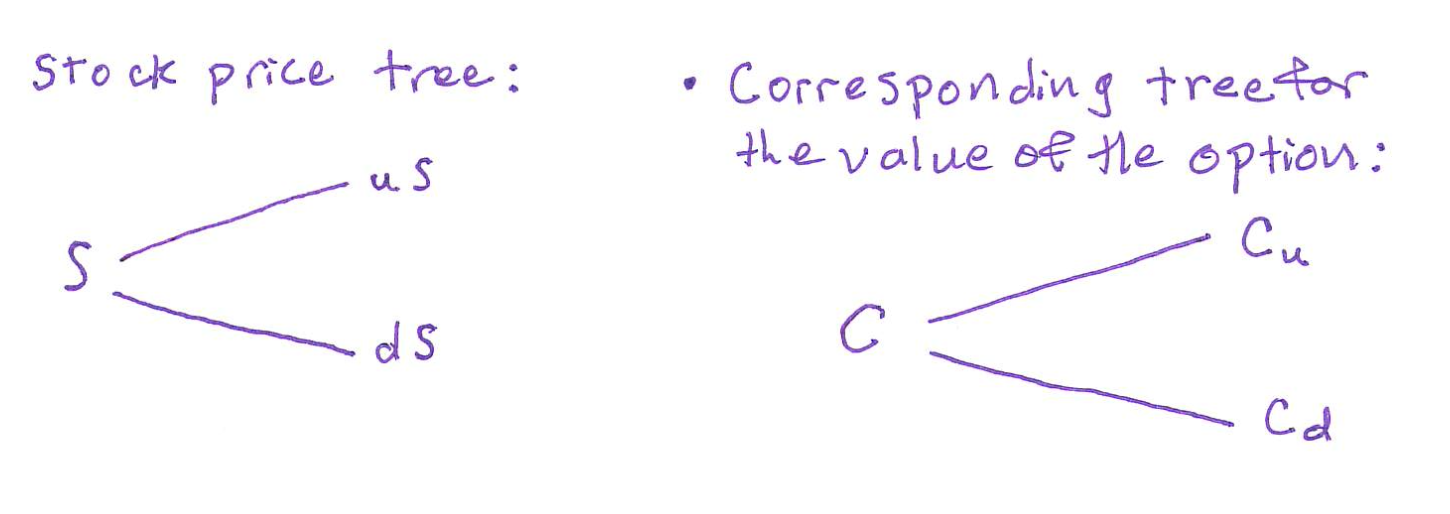 Stock price tree:
uS
S
dS
• Corresponding tree for
the value of the option:
Cu
C
Cd